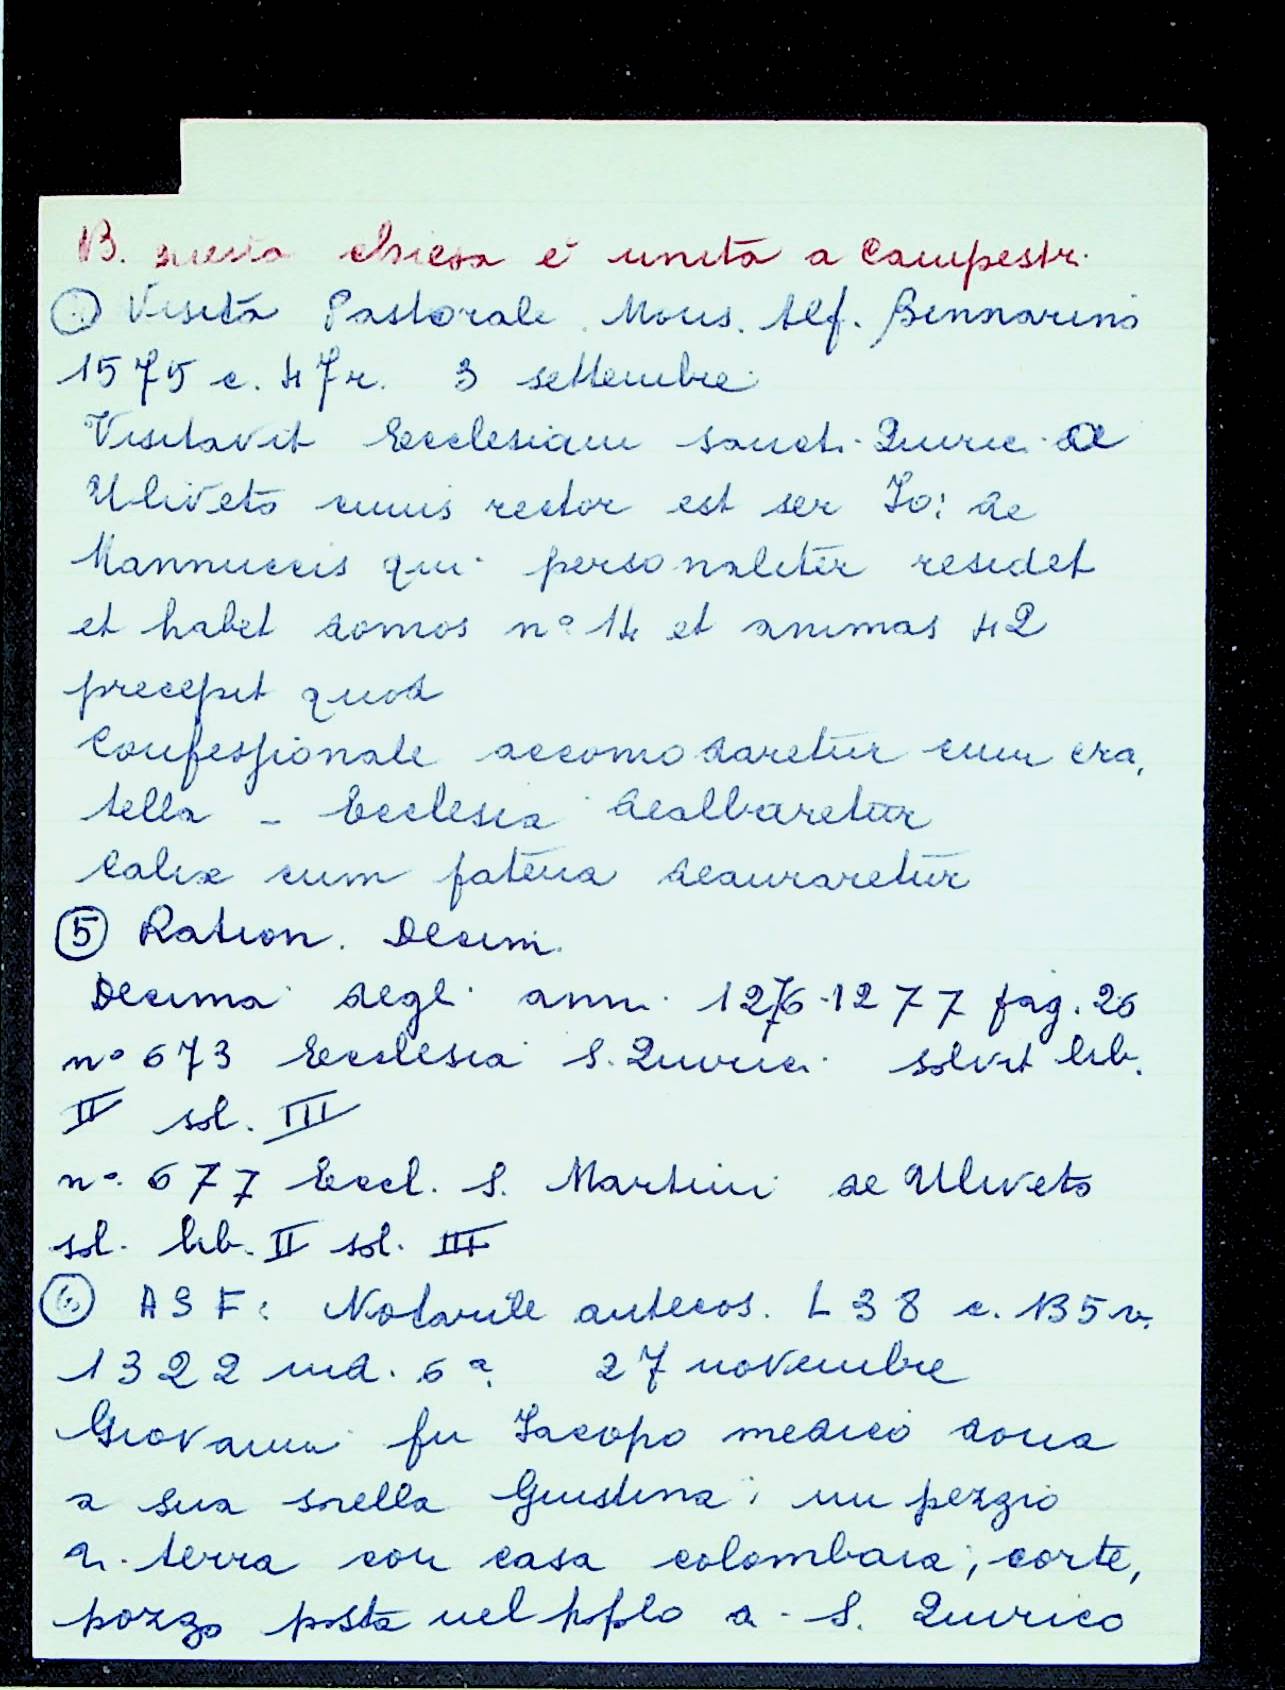 B. questa chiesa è unita a Campestri
Visita Pastorale Mons. Alf. Binnarini
1575 c. 47r. 3 settembre
Visitavit Ecclesiam sancti Quirici de
Uliveto cuius rector est ser Jo: de
Mannuccis qui personaliter residet
et habet domos n° 14 et animas 42
precepit quod
Confessionale accomodaretur cum cra,
tella - Ecclesia dealbaretur
Calix cum patena deauraretur
⑤ Ration. Decim.
Decima degli anni 1276-1277 pag. 26
n° 673 Ecclesia S. Quirici solvit lib.
II sol. III
n°. 677 Eccl. S. Martini de Uliveto
sol. lib. II sol. III
⑥ ASF: Notarile antecos. L 38 c. 135v.
1322 ind. 6ª. 27 novembre
Giovanni fu Jacopo medico dona
a sua sorella Giustina: un pezzo
di terra con casa colombaia, corte,
pozzo posta nel popolo di S. Quirico